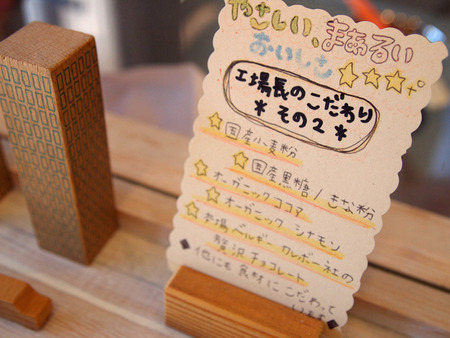 やさしい、まぁるい
おいしさ
工場長のこだわり
*その2*
国産小麦粉
国産黒糖/きな粉
オーガニックココア
オーガニックシナモン
本場ベルギーカレボー社の
贅沢チョコレート
他にも食材にこだわって
います